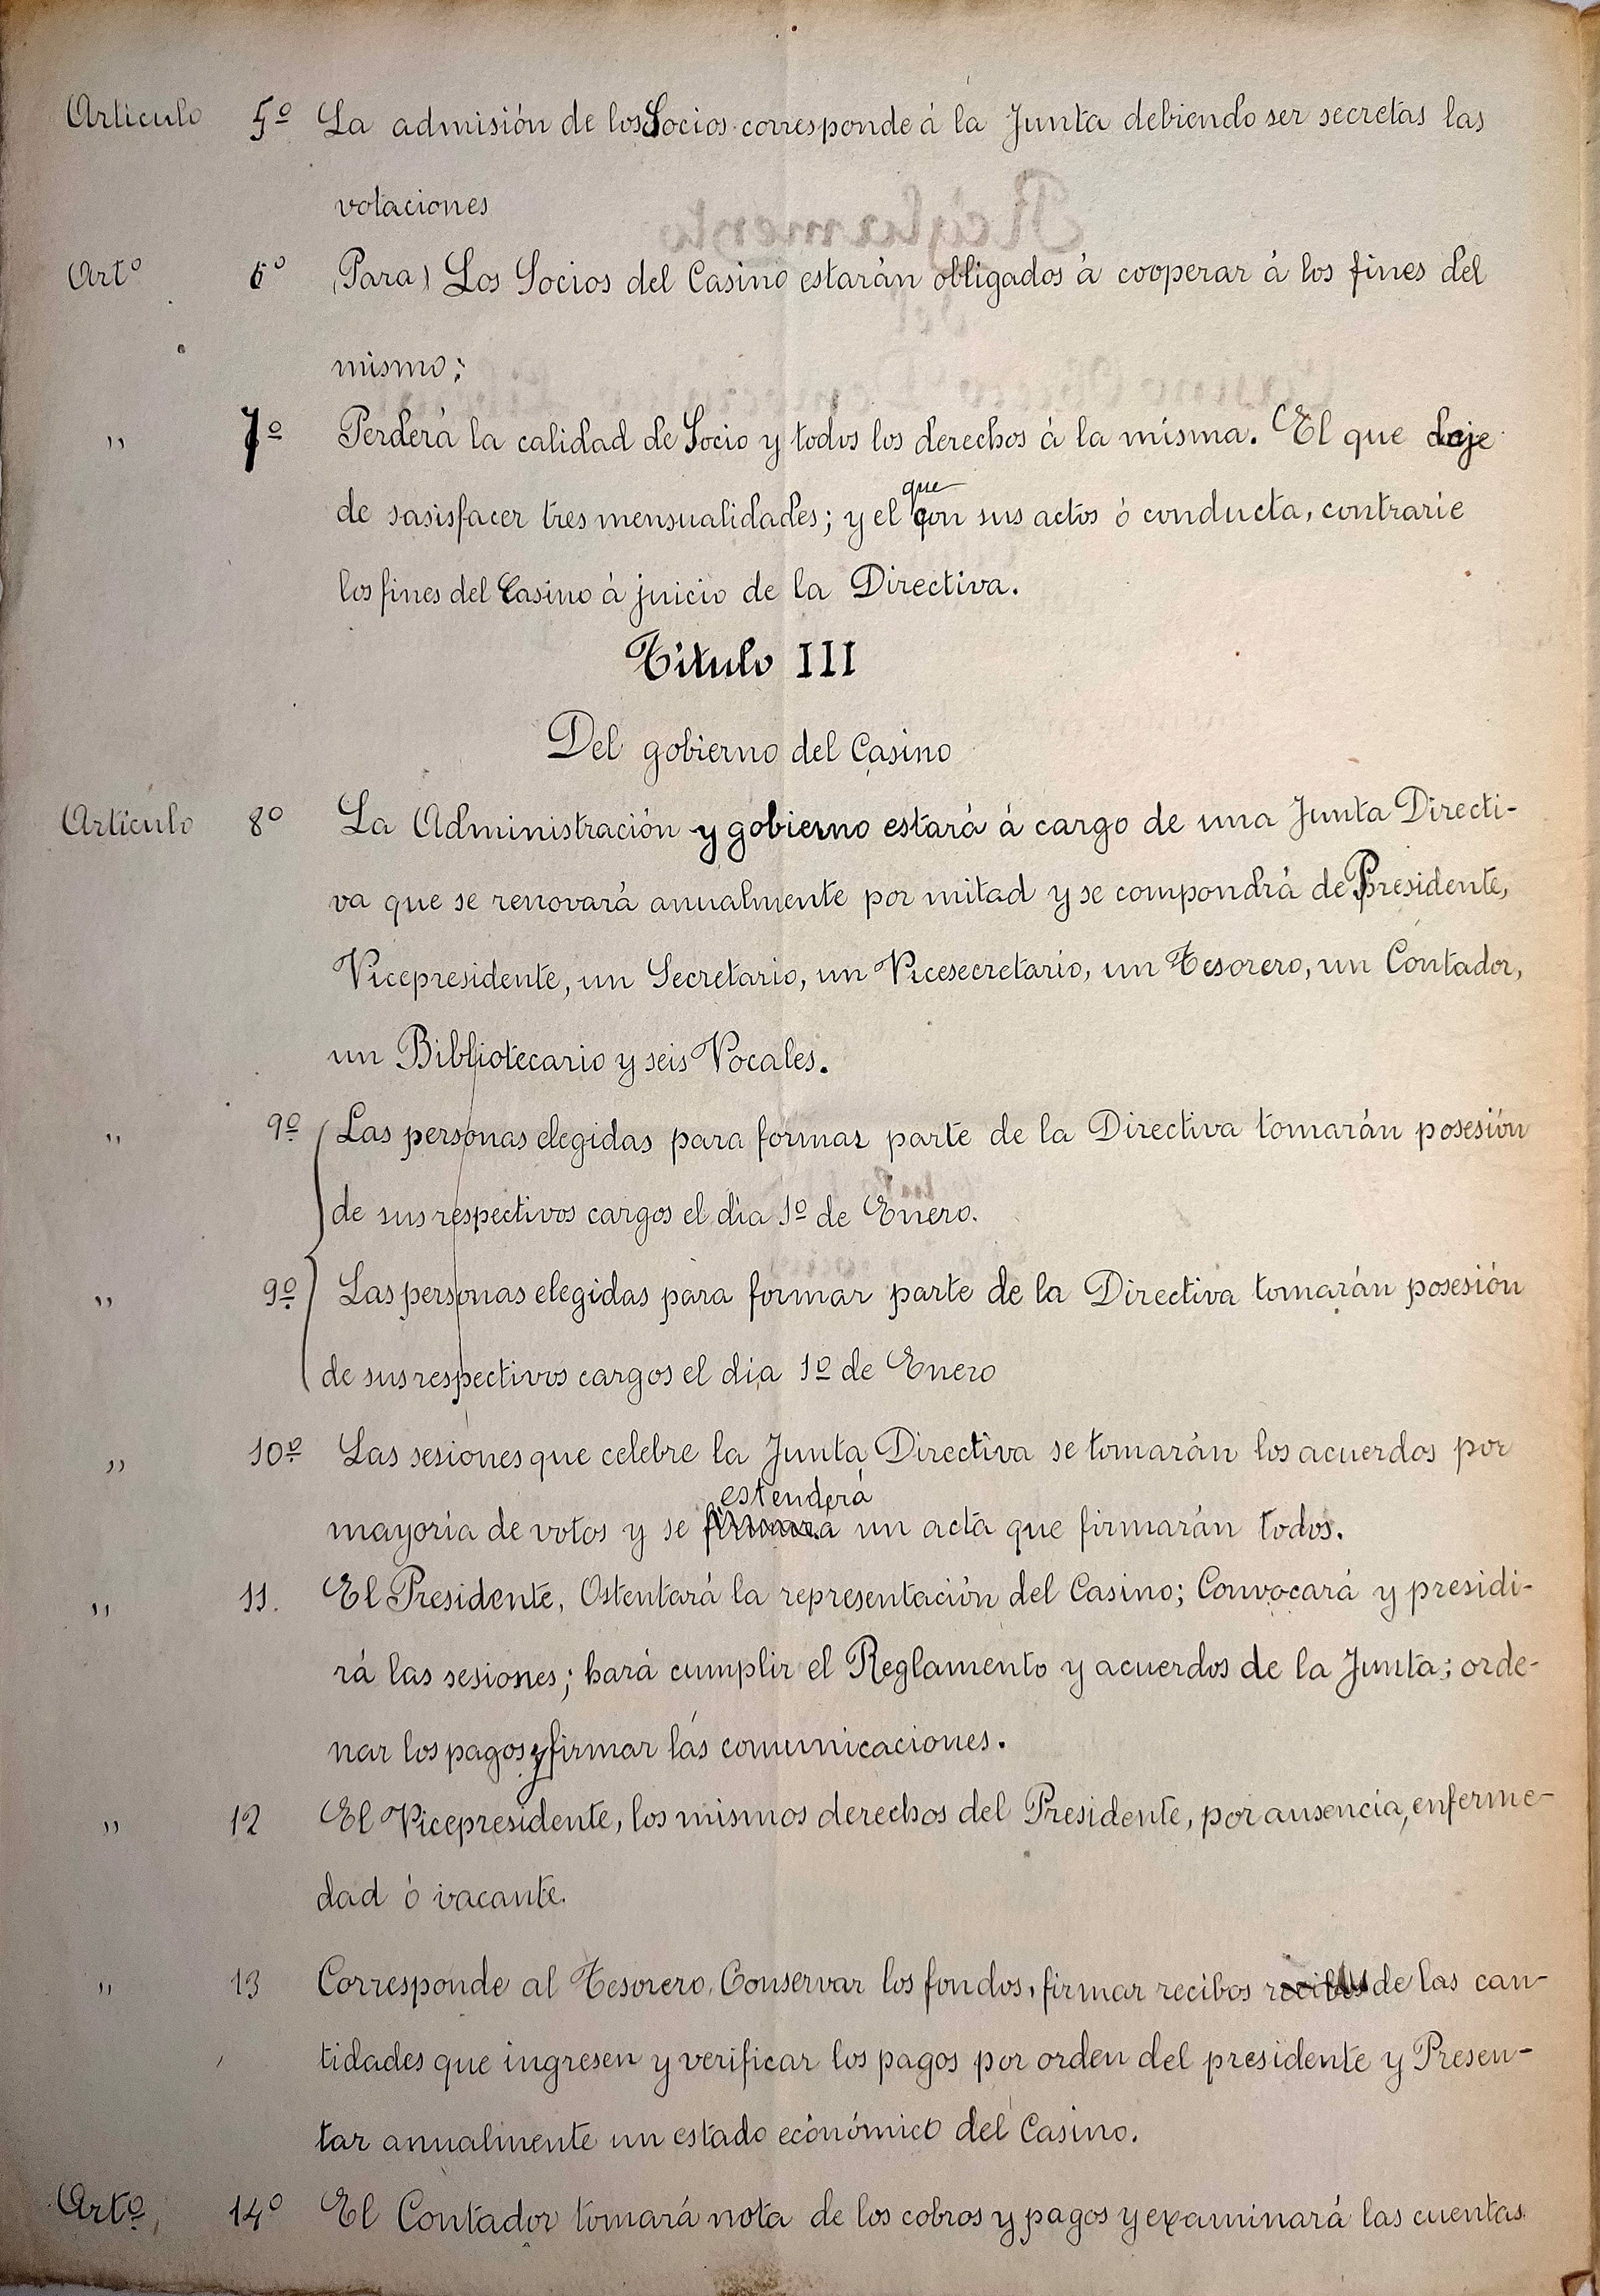 Artículo 5º La admisión de los Socios corresponde á la Junta debiendo ser secretas las
votaciones
Artº 6º (Para) Los Socios del Casino estarán obligados á cooperar á los fines del
mismo;
" 7º Perderá la calidad de Socio y todos los derechos á la misma. El que deje
de sasisfacer tres mensualidades; y el que con sus actos ó conducta, contrarie
los fines del Casino á juicio de la Directiva.
Título III
Del gobierno del Casino
Artículo 8º La Administración y gobierno estará á cargo de una Junta Directi-
va que se renovará anualmente por mitad y se compondrá de Presidente,
Vicepresidente, un Secretario, un Vicesecretario, un Tesorero, un Contador,
un Bibliotecario y seis Vocales.
" 9º Las personas elegidas para formar parte de la Directiva tomarán posesión
de sus respectivos cargos el día 1º de Enero.
" 9º Las personas elegidas para formar parte de la Directiva tomarán posesión
de sus respectivos cargos el dia 1º de Enero
" 10º Las sesiones que celebre la Junta Directiva se tomarán los acuerdos por
estenderá
mayoría de votos y se firmará un acta que firmarán todos.
" 11. El Presidente, Ostentará la representación del Casino; Convocará y presidi-
rá las sesiones; hará cumplir el Reglamento y acuerdos de la Junta; orde-
nar los pagos y firmar las comunicaciones.
" 12 El Vicepresidente, los mismos derechos del Presidente, por ausencia, enferme-
dad ó vacante.
" 13 Corresponde al Tesorero. Conservar los fondos, firmar recibos recibos de las can-
tidades que ingresen y verificar los pagos por orden del presidente y Presen-
tar anualmente un estado económico del Casino.
Artº, 14º El Contador tomará nota de los cobros y pagos y examinará las cuentas.